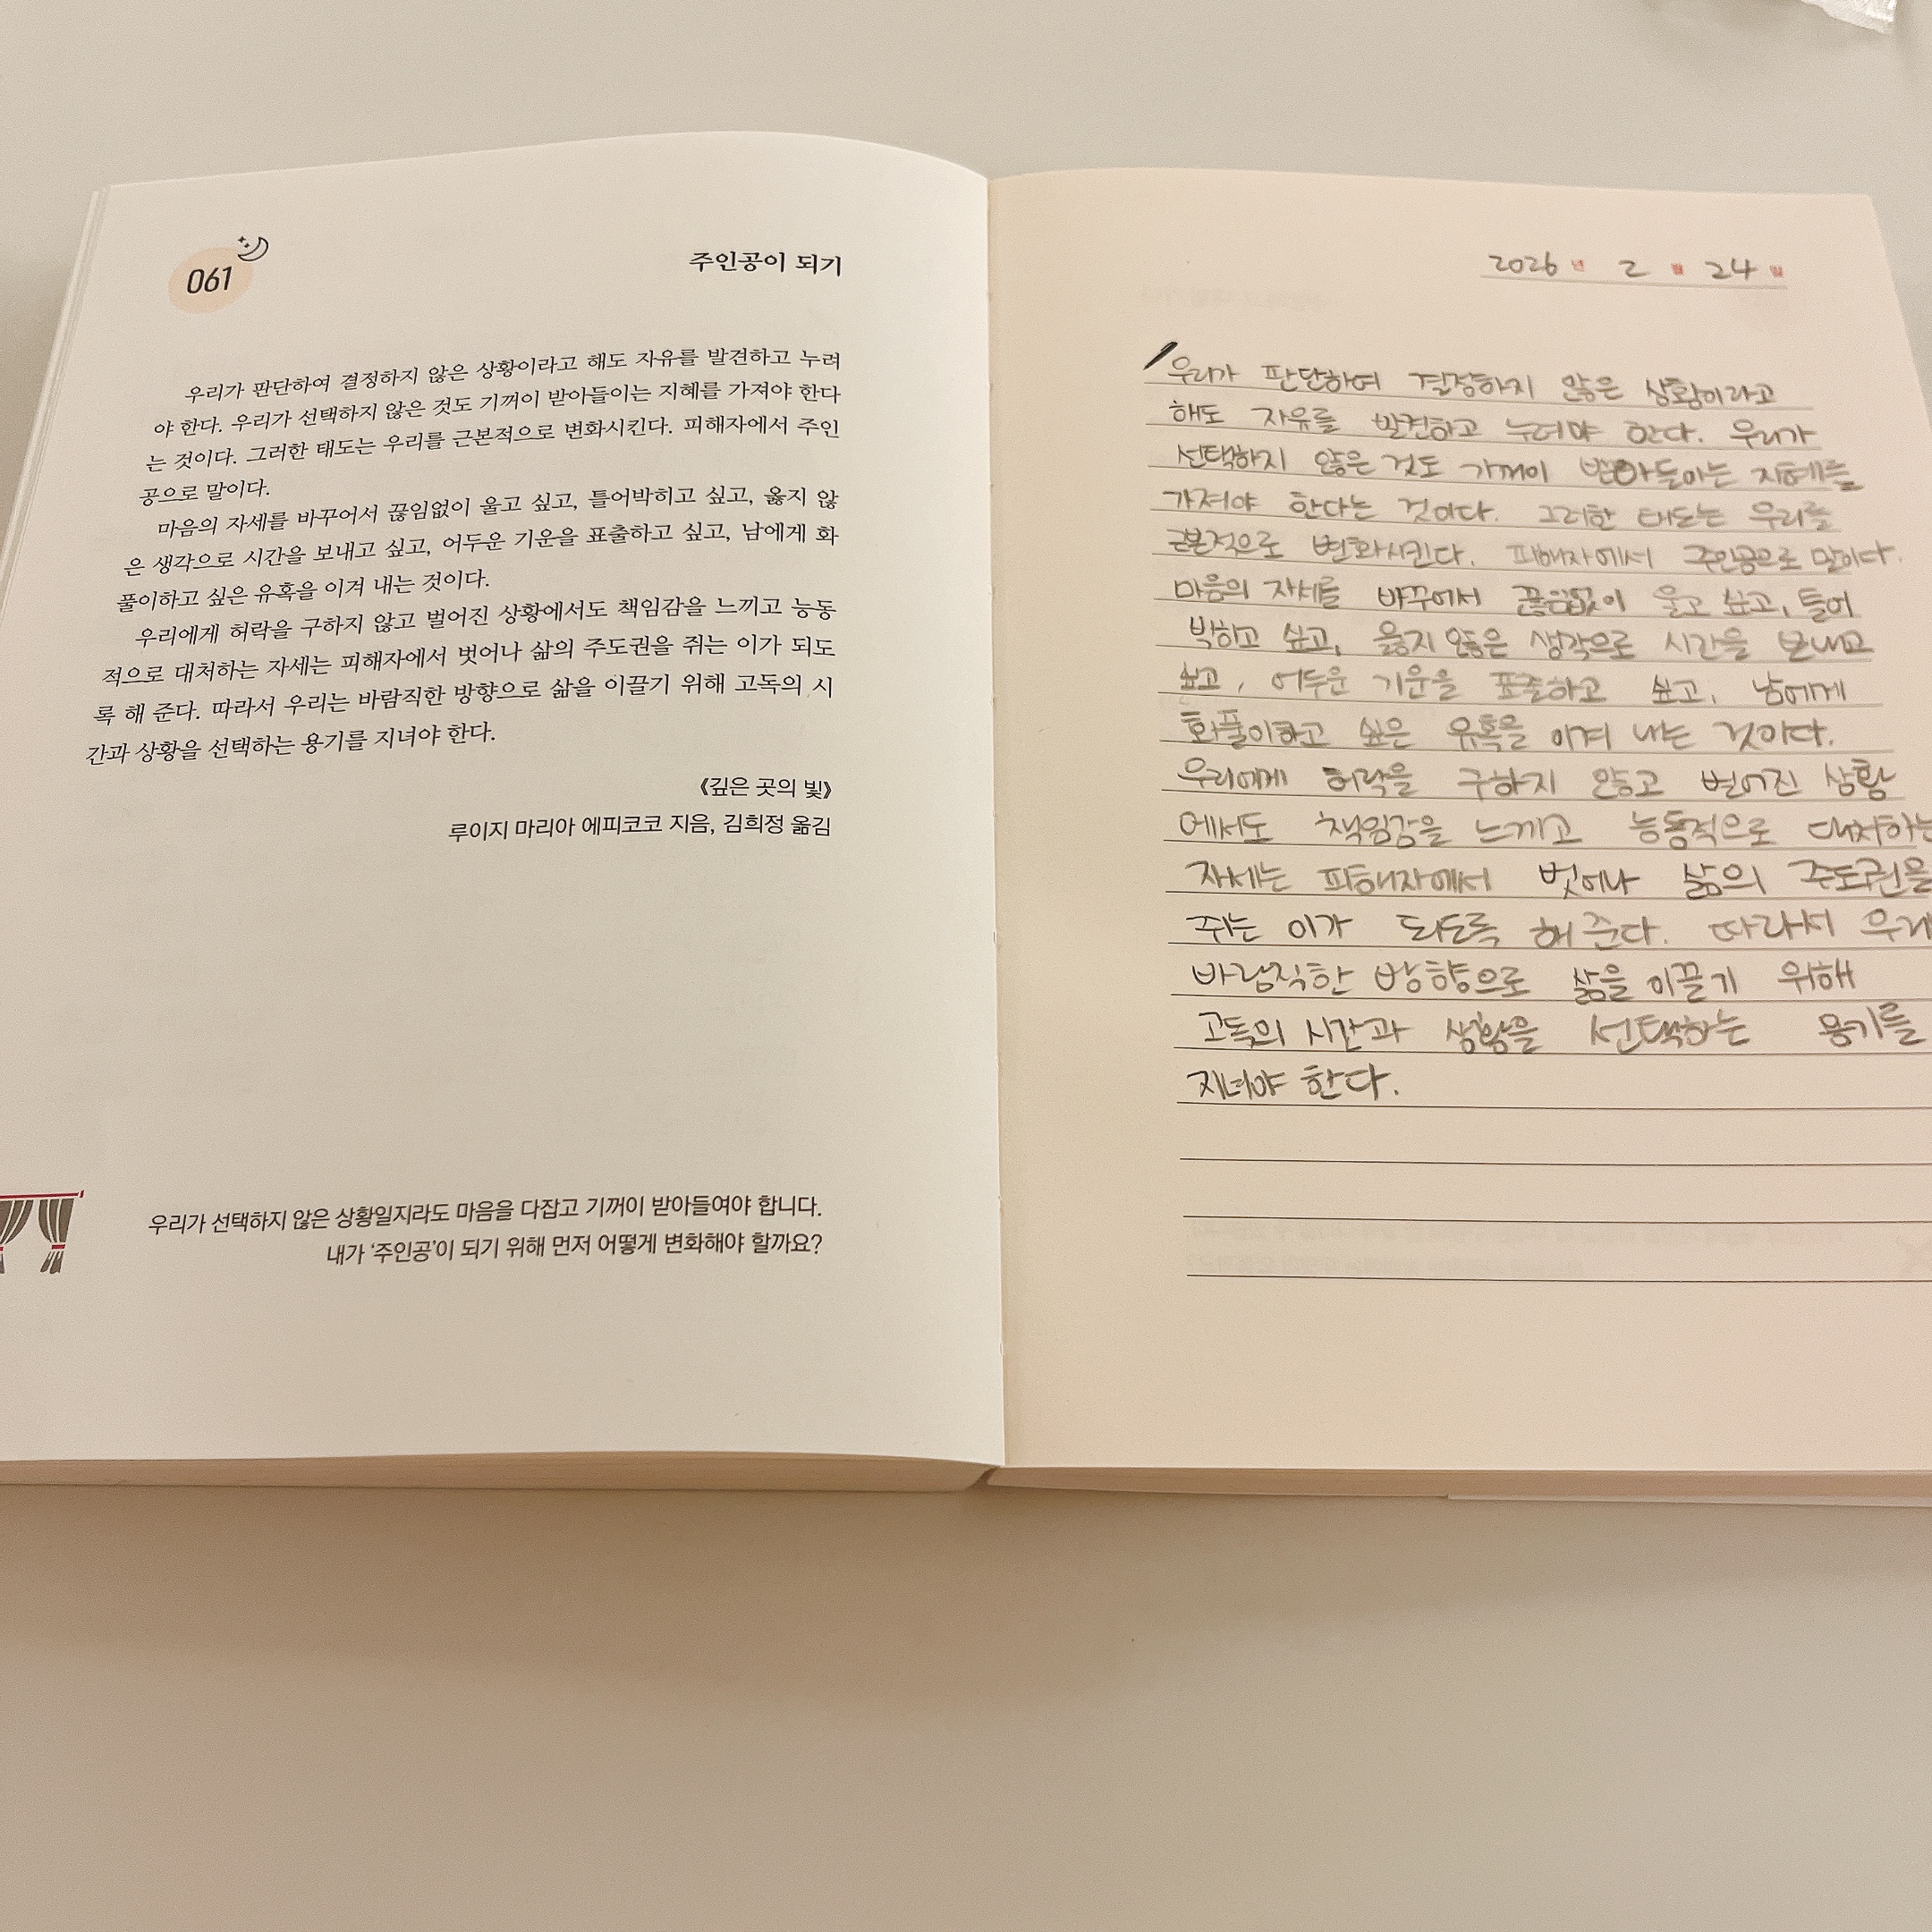 061
주인공이 되기
우리가 판단하여 결정하지 않은 상황이라고 해도 자유를 발견하고 누려
야 한다. 우리가 선택하지 않은 것도 기꺼이 받아들이는 지혜를 가져야 한다
는 것이다. 그러한 태도는 우리를 근본적으로 변화시킨다. 피해자에서 주인
공으로 말이다.
마음의 자세를 바꾸어서 끊임없이 울고 싶고, 틀어박히고 싶고, 옳지 않
은 생각으로 시간을 보내고 싶고, 어두운 기운을 표출하고 싶고, 남에게 화
풀이하고 싶은 유혹을 이겨 내는 것이다.
우리에게 허락을 구하지 않고 벌어진 상황에서도 책임감을 느끼고 능동
적으로 대처하는 자세는 피해자에서 벗어나 삶의 주도권을 쥐는 이가 되도
록 해 준다. 따라서 우리는 바람직한 방향으로 삶을 이끌기 위해 고독의 시
간과 상황을 선택하는 용기를 지녀야 한다.
《깊은 곳의 빛》
루이지 마리아 에피코코 지음, 김희정 옮김
우리가 선택하지 않은 상황일지라도 마음을 다잡고 기꺼이 받아들여야 합니다.
내가 ‘주인공’이 되기 위해 먼저 어떻게 변화해야 할까요?
2026 년 2 월 24 일
우리가 판단하여 결정하지 않은 상황이라고
해도 자유를 발견하고 누려야 한다. 우리가
선택하지 않은 것도 기꺼이 받아들이는 지혜를
가져야 한다는 것이다. 그러한 태도는 우리를
근본적으로 변화시킨다. 피해자에서 주인공으로 말이다.
마음의 자세를 바꾸어서 끊임없이 울고 싶고, 틀어
박하고 싶고, 옳지 않은 생각으로 시간을 보내고
싶고, 어두운 기운을 표출하고 싶고, 남에게
화풀이하고 싶은 유혹을 이겨 내는 것이다.
우리에게 허락을 구하지 않고 벌어진 상황
에서도 책임감을 느끼고 능동적으로 대처하는
자세는 피해자에서 벗어나 삶의 주도권을
쥐는 이가 되도록 해 준다. 따라서 우리
바람직한 방향으로 삶을 이끌기 위해
고독의 시간과 상황을 선택하는 용기를
지녀야 한다.